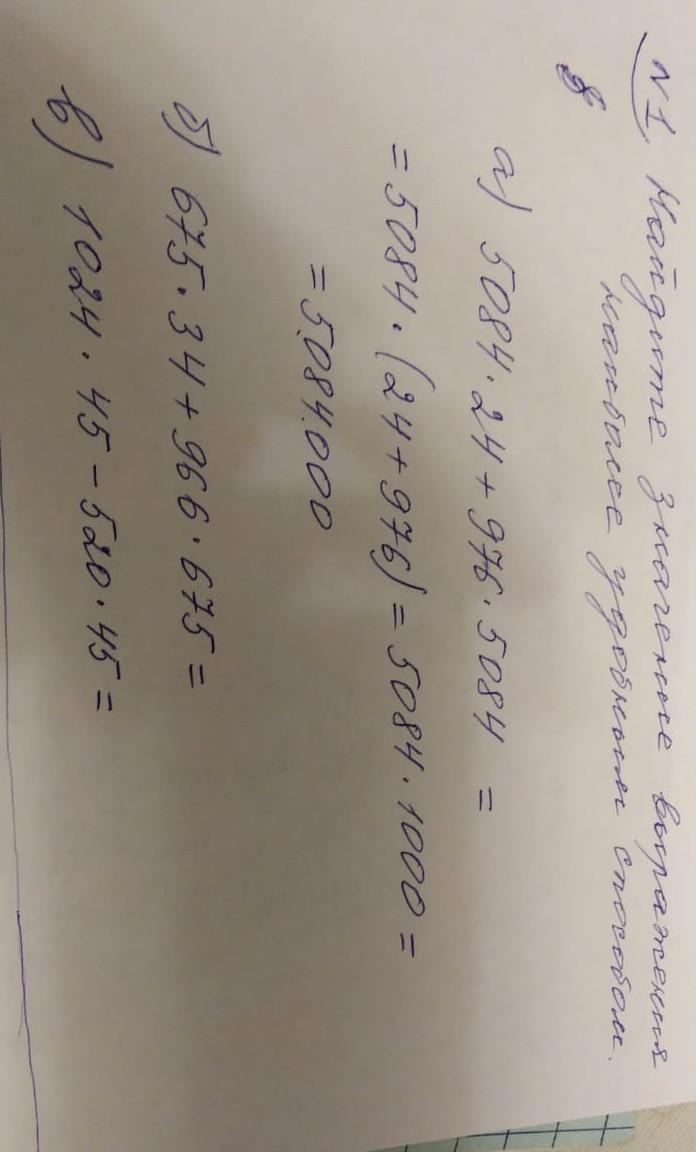 N1. Найдите значение выражения
наиболее удобным способом.
а) 5084·24+976·5084 =
= 5084·(24+976) = 5084·1000 =
= 5084000
б) 675·34+966·675 =
в) 1024·45-520·45 =